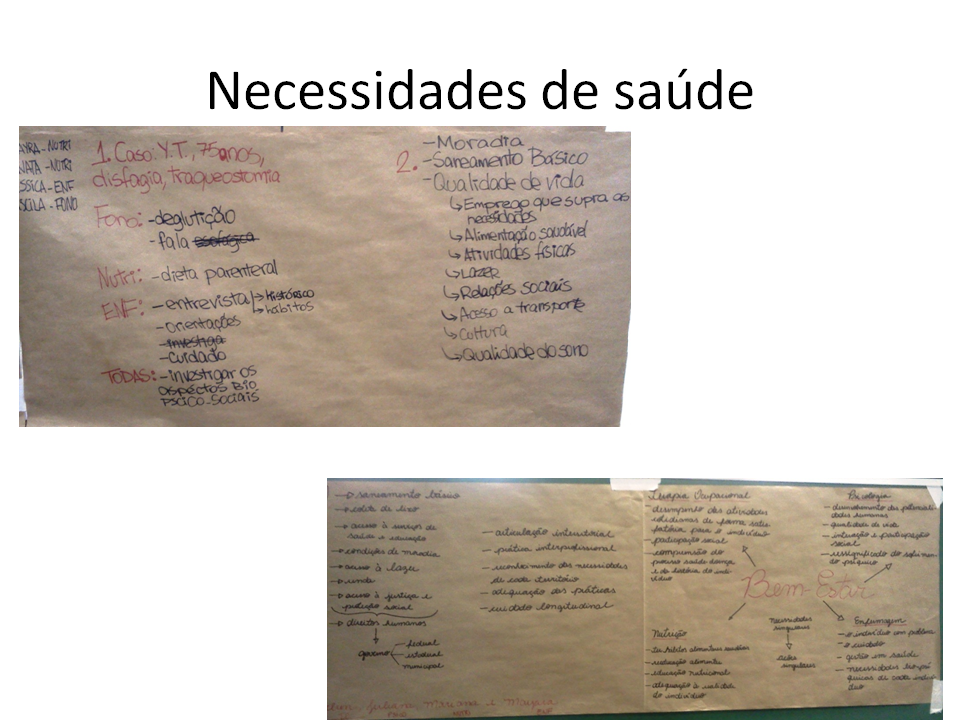 Necessidades de saúde
AYRA - NUTRI
NATA - NUTRI
SSICA - ENF
SCILA - FONO
1. Caso: Y.T., 75 anos,
disfagia, traqueostomia
Fono: - deglutição
- fala esofágica
Nutri: - dieta parenteral
ENF: - entrevista → histórico
→ hábitos
- orientações
- investiga
- cuidado
TODAS: - investigar os
aspectos bio
psico-sociais
2. - Moradia
- Saneamento Básico
- Qualidade de vida
↳ Emprego que supra as
necessidades
↳ Alimentação saudável
↳ Atividades físicas
↳ Lazer
↳ Relações sociais
↳ Acesso a transporte
↳ Cultura
↳ Qualidade do sono
→ saneamento básico
→ coleta de lixo
→ acesso à serviços de
saúde e educação
→ condições de moradia
→ acesso à lazer
→ renda
→ acesso à justiça e
proteção social
→ direitos humanos
governo
- federal
- estadual
- municipal
- articulação intersetorial
- prática interprofissional
- reconhecimento das necessidades
de cada território
- adequação das práticas
- cuidado longitudinal
Terapia Ocupacional
- desempenho das atividades
cotidianas de forma satis
fatória para o indivíduo
- participação social
- compreensão do
processo saúde doença
e da história do indi
víduo
Psicologia
- desenvolvimento das potenciali
dades humanas
- qualidade de vida
- interação e participação
social
- ressignificado do sofrimen
to psíquico
Bem-Estar
Nutrição
- ter hábitos alimentares
- educação nutricional
- adequação à realidade
do indivíduo
Necessidades
singulares
Ações
singulares
Enfermagem
- o indivíduo com problema
- o cuidado
- gestão em saúde
- necessidades
de cada indiví
duo
Juliana, Mariana e Mayara